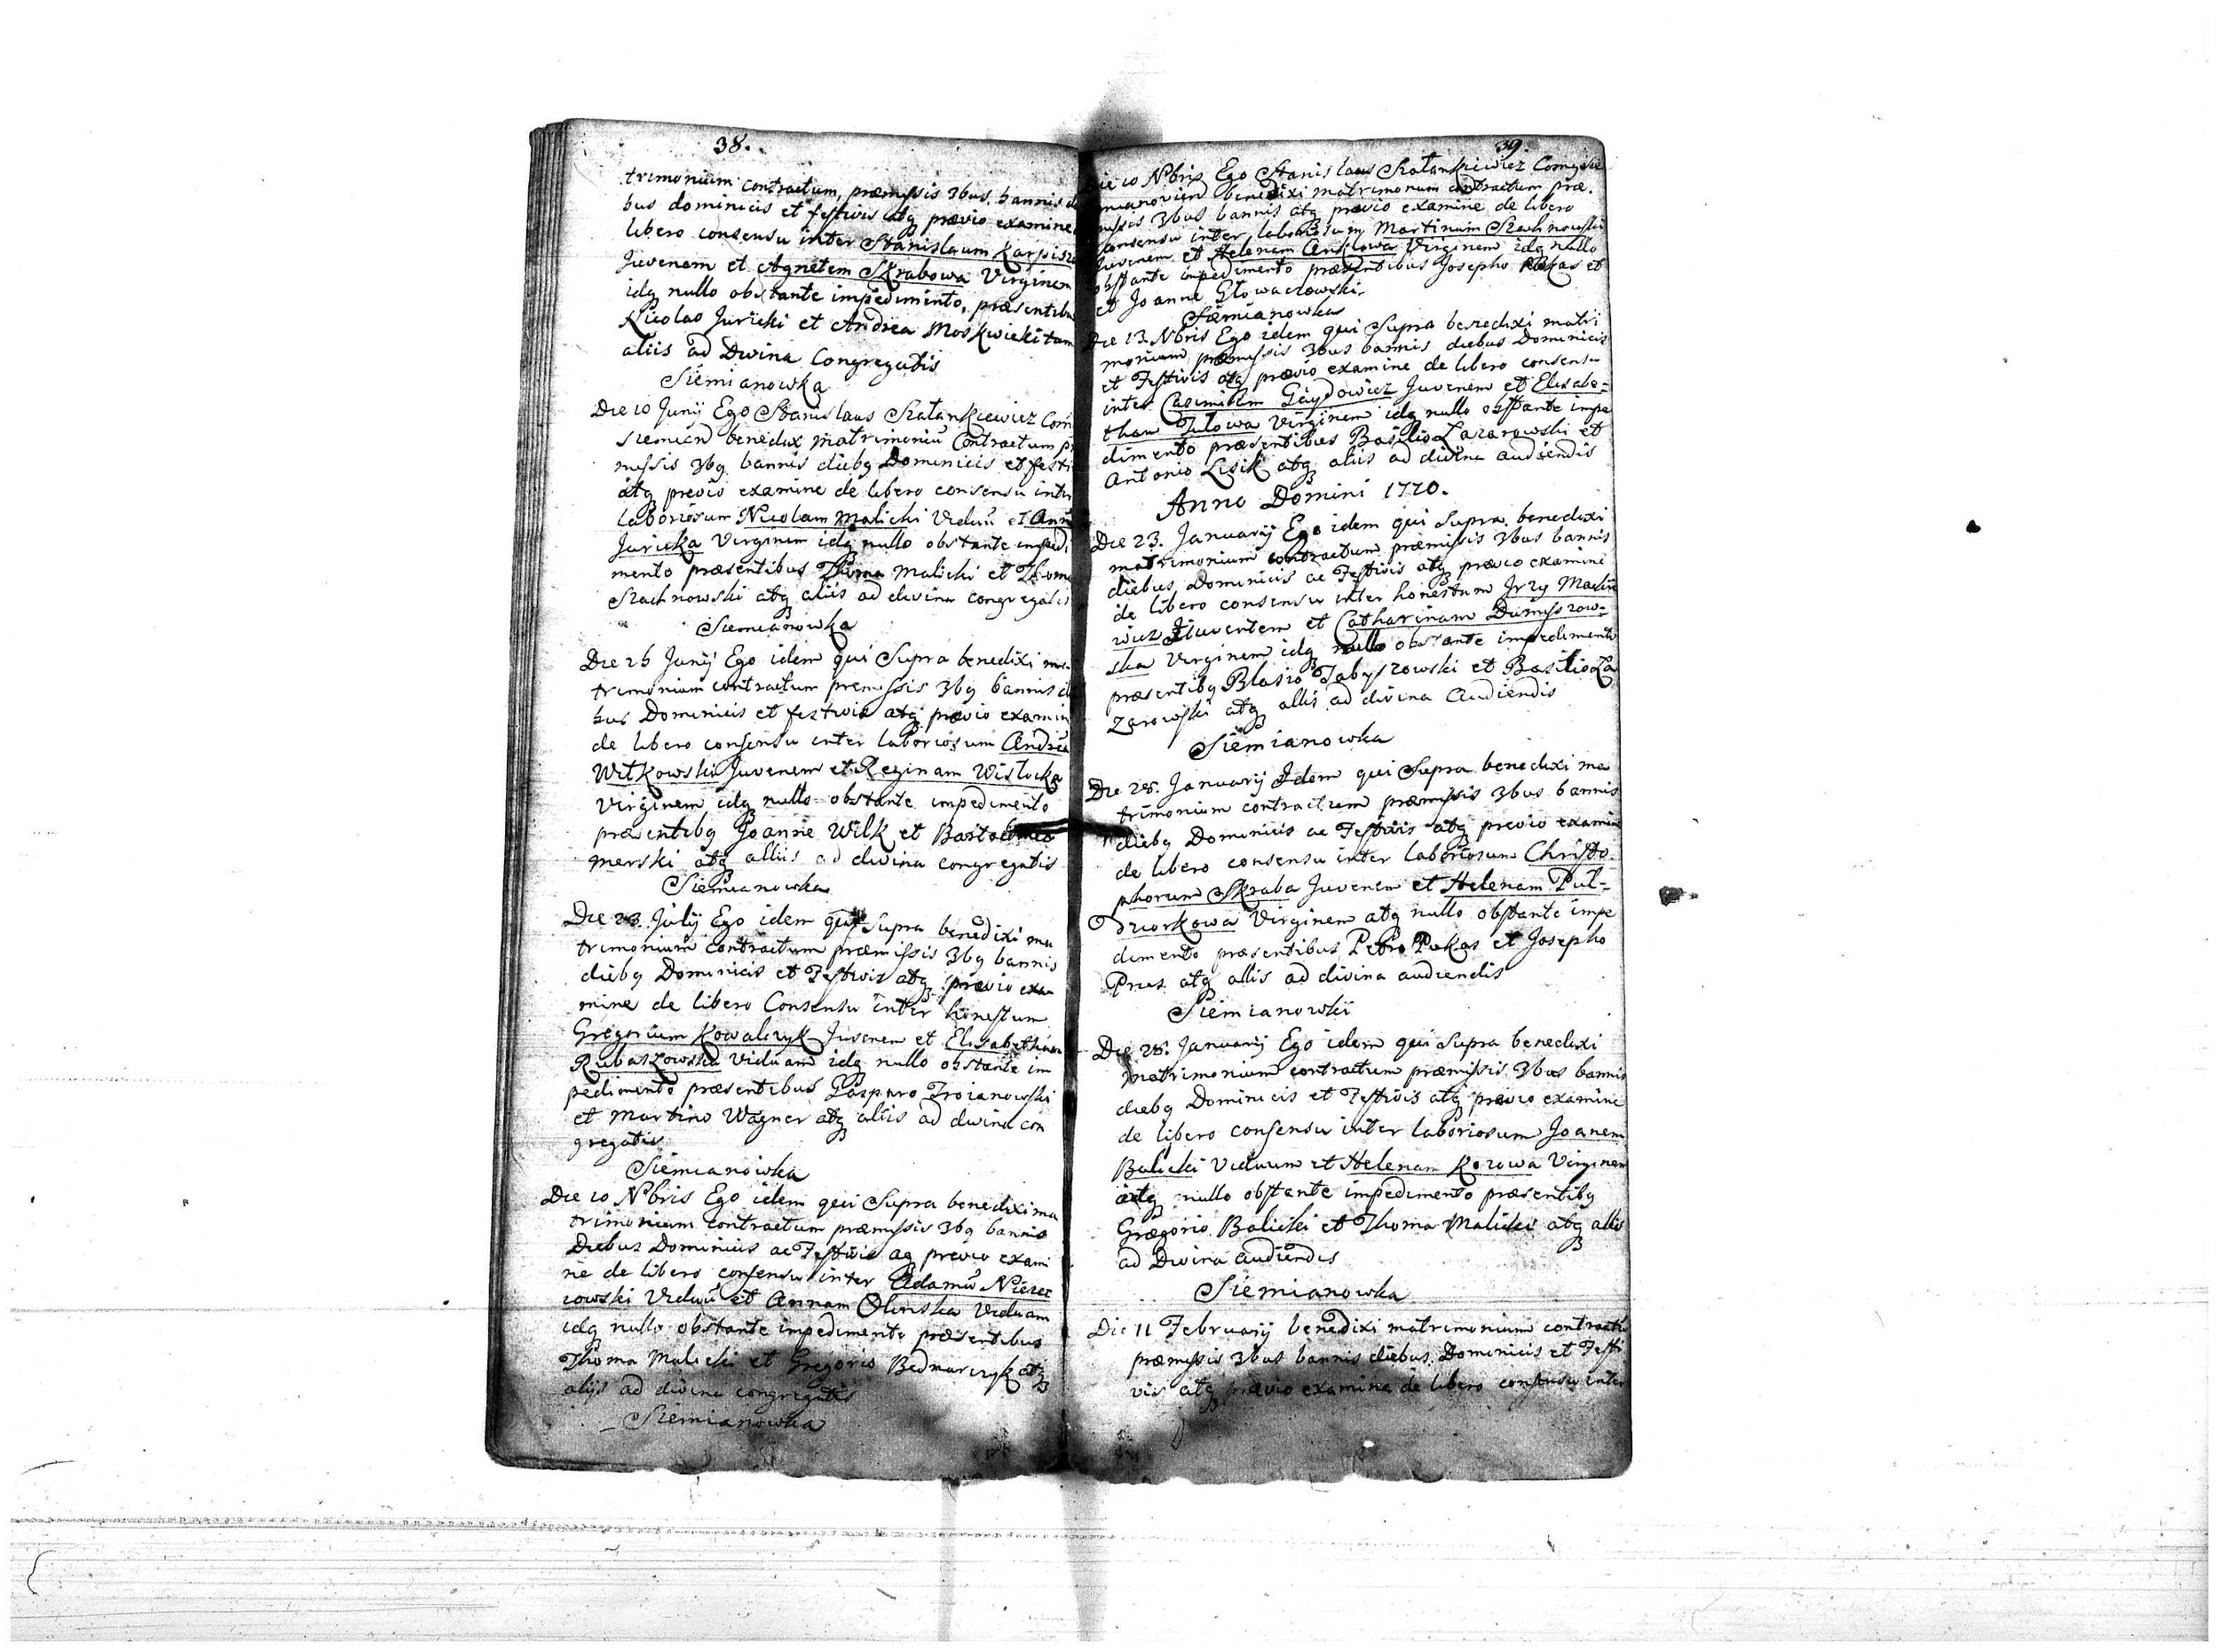 38.
trimonium contractum, præmissis 3bus bannis d
bus dominicis et festivis atq prævio examine
libero consensu inter Stanislaum Karpisz
Juvenem et Agnetem Skrabowa Virginem
idq nullo obstante impedimento, præsentibu
Nicolao Juricki et Andrea Moskwicki tam
aliis ad Divina Congregatis
Siemianowka
Die 10 Junij Ego Stanislaus Szatankiewicz Com
Siemian benedix matrimoniũ Contractum pr
missis 3bq bannis diebq Dominicis et festi
atq previo examine de libero consensu inter
laboriosum Nicolaum Malicki Viduũ et Ann
Juricka Virginem idq nullo obstante impedi
mento præsentibus Thoma Malicki et Thoma
Szachnowski atq aliis ad divina congregatis
Siemianowka
Die 26 Junij Ego idem qui Supra benedixi ma
trimonium contractum premissis 3bq bannis d
bus Dominicis et festivis atq prævio examin
de libero consensu inter laboriosum Andrea
Witkowski Juvenem et Reginam Wisłocka
Virginem idq nullo obstante impedimento
præsentibq Joanne Wilk et Bartolomeo
merski atq alliis ad divina congregatis
Siemianowka
Die 23. Julij Ego idem qui Supra benedixi ma
trimonium contractum præmissis 3bq bannis
diebq Dominicis et Festivis atq prævio exa
mine de libero Consensu inter honestum
Gregorium Kowalczyk Juvenem et Elisabetham
Rubaszowska Viduam idq nullo obstante im
pedimento præsentibus Gasparo Troianowski
et Martino Wagner atq aliis ad divina con
gregatis
Siemianowka
Die 10 Nbris Ego idem qui Supra benedixi ma
trimonium contractum præmissis 3bq bannis
Diebus Dominicis ac Festivis aq previo exami
ne de libero consensu inter Adamũ Niezec
zowski Viduũ et Annam Olinska Viduam
idq nullo obstante impedimento præsentibus
Thoma Malicki et Gregorio Bednarczyk atq
alijs ad divina congregatis
Siemianowka
39.
Die 10 Nbris Ego Stanislaus Szatankiewicz Com Sie
mianovien benedixi matrimonium contractum præ
missis 3bus bannis atq prævio examine de libero
consensu inter laboriosum Martinum Szachnowski
Juvenem et Helenam Cenkowa Virginem idq nullo
obstante impedimento præsentibus Josepho Pukas et
et Joanne Głowaczowski
Siemianowka
Die 13. Nbris Ego idem qui Supra benedixi matri
monium præmissis 3bus bannis diebus Dominicis
et Festivis atq prævio examine de libero consensu
inter Casimirum Gaydowicz Juvenem et Elisabe=
tham Tutowa Virginem idq nullo obstante impe
dimento præsentibus Basilio Lazarowski et
Antonio Lisik atq aliis ad divina audiendis
Anno Domini 1770.
Die 23. Januarij Ego idem qui Supra benedixi
matrimonium contractum præmissis 3bus bannis
diebus Dominicis ac Festivis atq prævio examine
de libero consensu inter honestum Jrzy Mackie
wicz Juventem et Catharinam Dumiszow=
ska Virginem idq nullo obstante impedimento
præsentibq Blasio Tabyszowski et Basilio La
zarowski atq allis ad divina Audiendis
Siemianowka
Die 28. Januarij Idem qui Supra benedixi ma
trimonium contractum præmissis 3bus bannis
diebq Dominicis ac Festivis atq previo examin
de libero consensu inter laboriosum Christo
phorum Skraba Juvenem et Helenam Pul=
Dworkowa Virginem atq nullo obstante impe
dimento præsentibus Petro Pukas et Josepho
Prus atq allis ad divina audiendis
Siemianowski
Die 28. Januarij Ego idem qui Supra benedixi
matrimonium contractum præmissis 3bus bannis
diebq Dominicis et Festivis atq prævio examine
de libero consensu inter laboriosum Joanem
Balicki Viduum et Helenam Kozowa Virginem
atq nullo obstante impedimento præsentibq
Grægorio Balicki et Thoma Malicki atq allis
ad Divina audiendis
Siemianowka
Die 11 Februarij benedixi matrimonium contractu
præmissis 3bus bannis diebus Dominicis et Festi
vis atq prævio examine de libero consensu inter